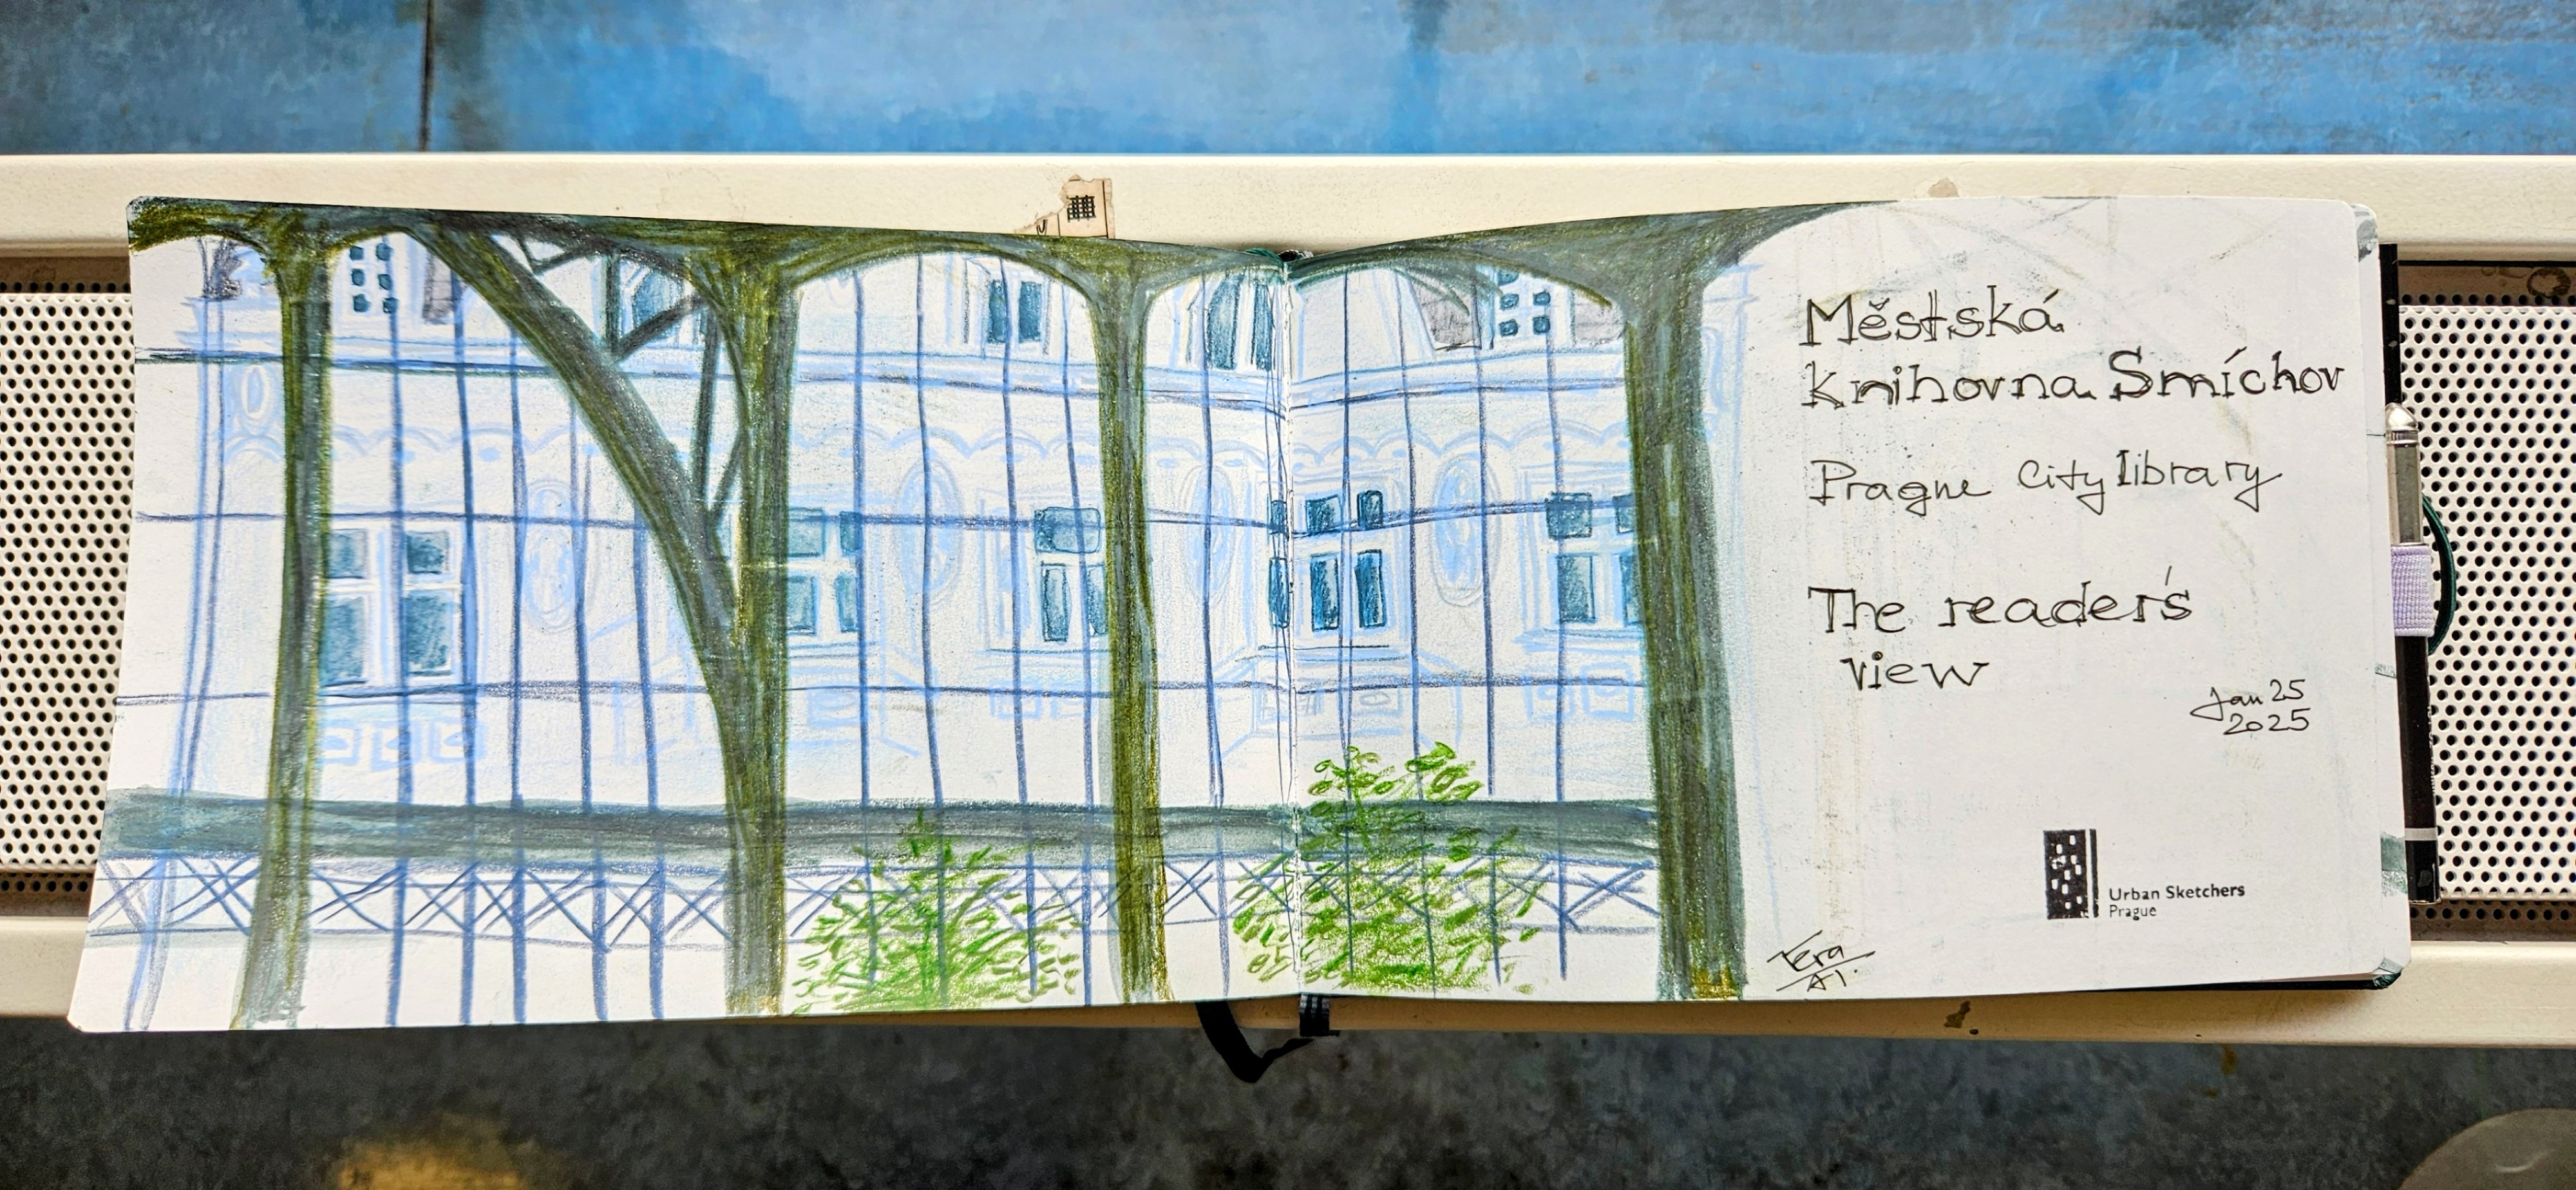 Městská
knihovna Smíchov
Prague City library
The reader's
view
Jan 25
2025
Urban Sketchers
Prague
Vera